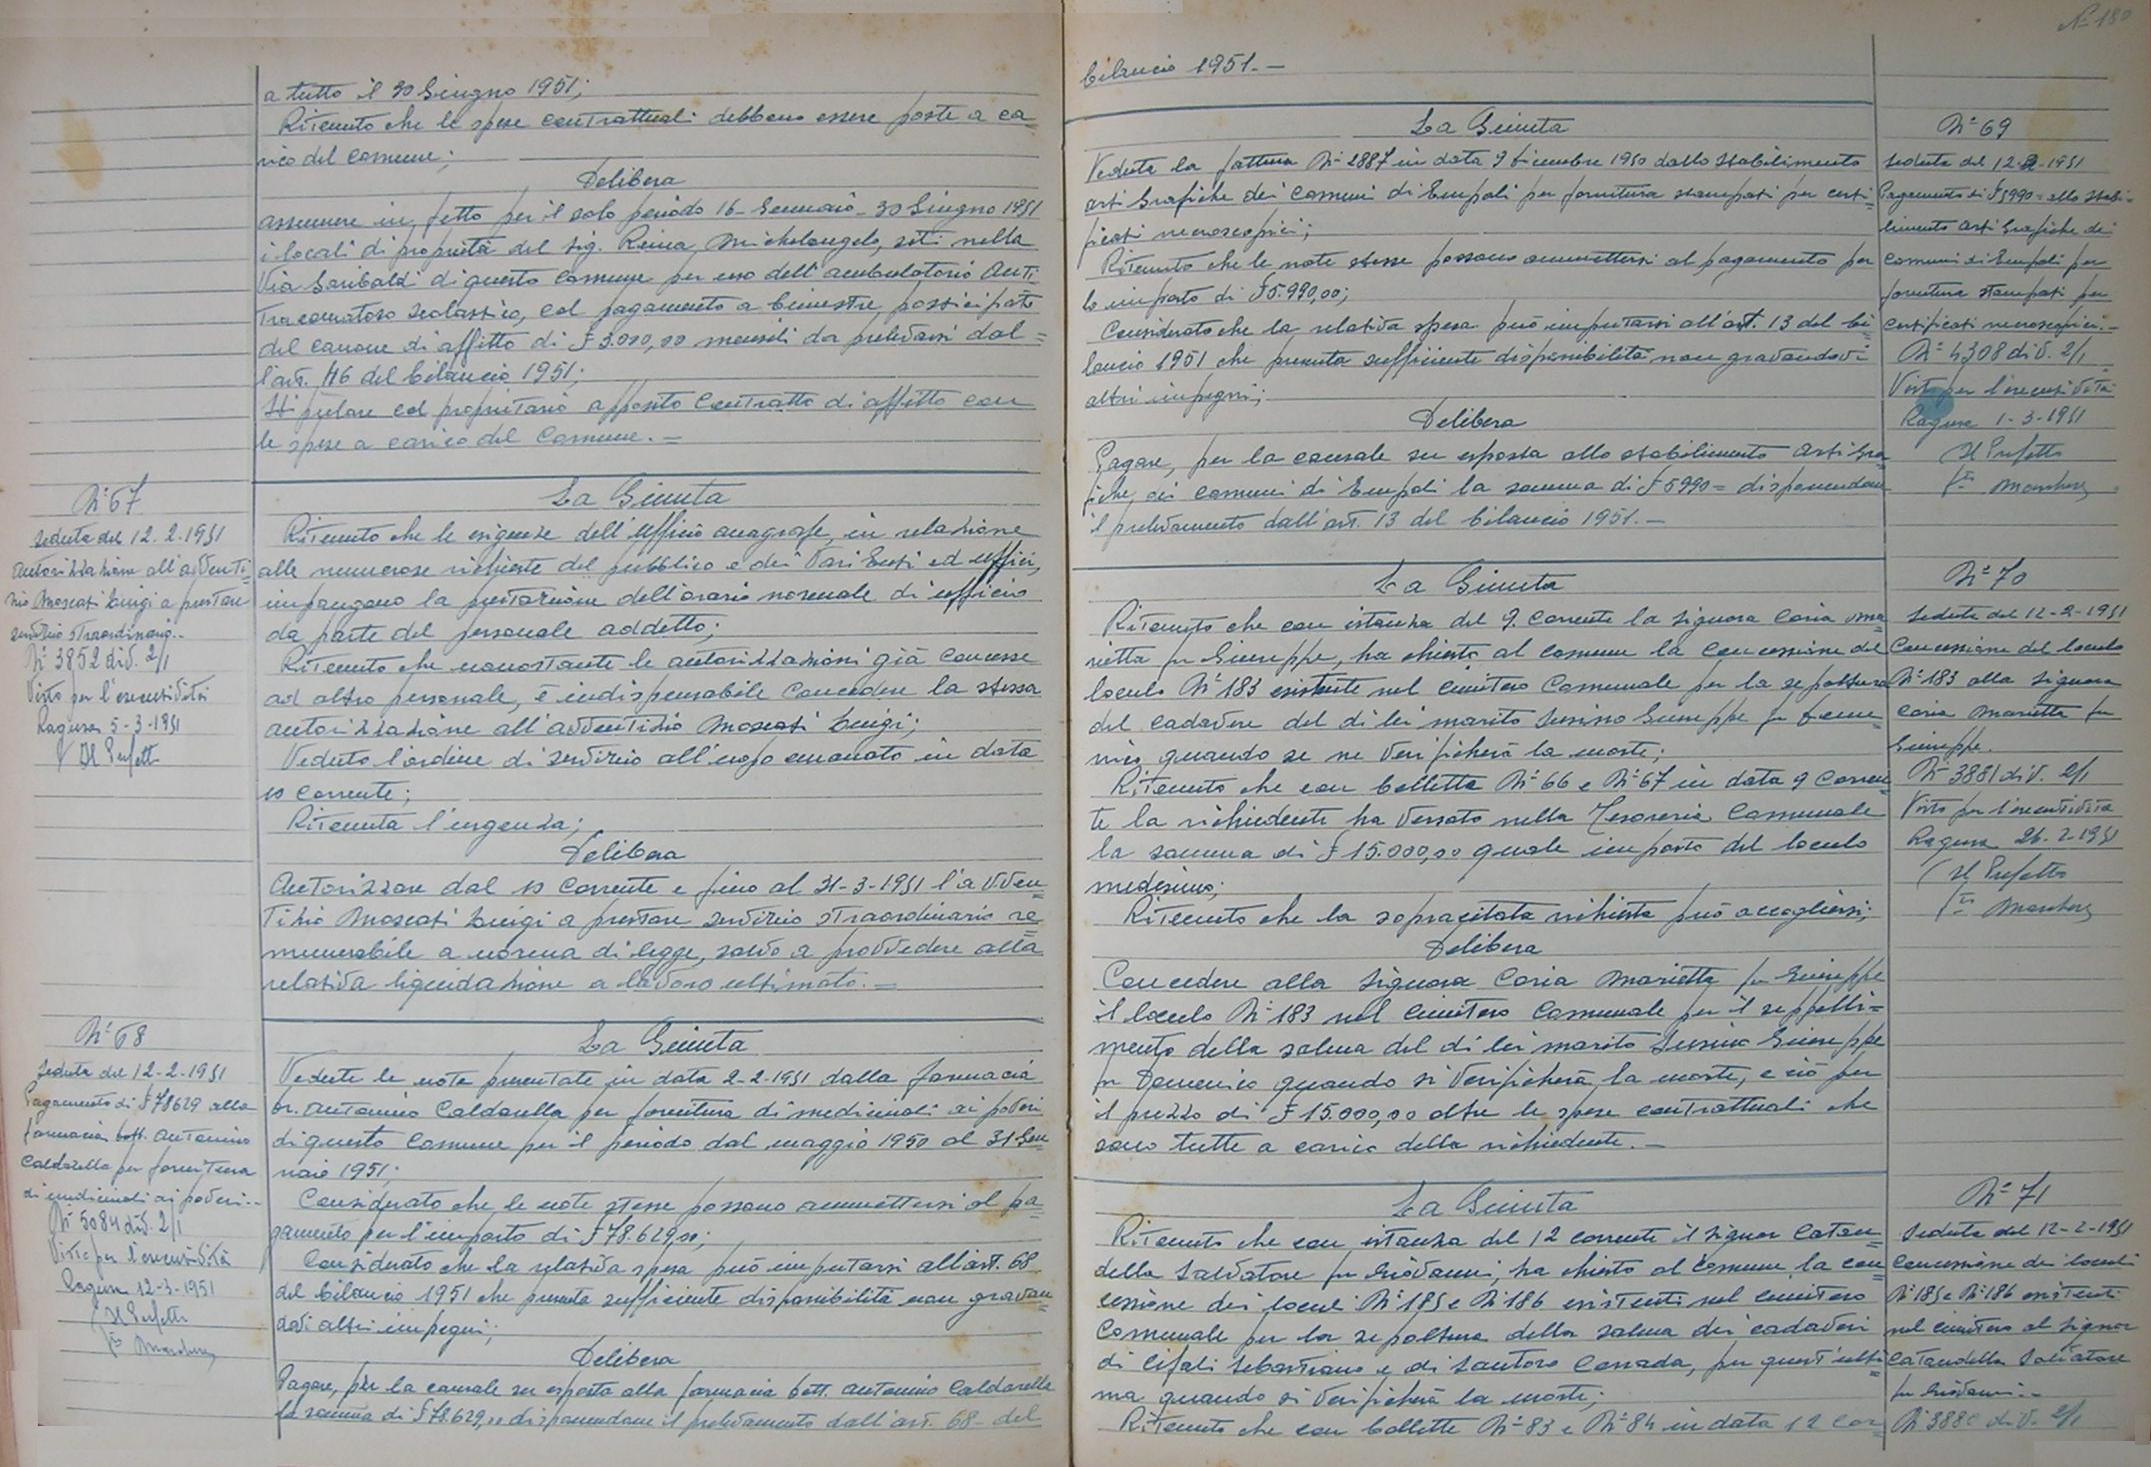 a tutto il 30 Giugno 1951;
Ritenuto che le spese contrattuali debbono essere poste a ca=
rico del comune;
Delibera
assumere in fitto per il solo periodo 16 Gennaio - 30 Giugno 1951
i locali di proprietà del sig. Reina Michelangelo, siti nella
Via Garibaldi di questo Comune per uso dell'ambulatorio anti
Tracomatoso scolastico, col pagamento a bimestre posticipato
del canone di affitto di £ 3.000,00 mensili da prelevarsi dal=
l'art. 46 del bilancio 1951;
Stipulare col proprietario apposito contratto di affitto con
le spese a carico del Comune. =
N° 67
Seduta del 12.2.1951
Autorizzazione all'avventi=
zio Moscati Luigi a prestare
servizio straordinario.-
N° 3852 div. 2/1
Visto per l'esecutività
Ragusa 5-3-1951
Il Prefetto
La Giunta
Ritenuto che le esigenze dell'Ufficio anagrafe, in relazione
alle numerose richieste del pubblico e dei vari Enti ed uffici,
impongono la protrazione dell'orario normale di ufficio
da parte del personale addetto;
Ritenuto che nonostante le autorizzazioni già concesse
ad altro personale, è indispensabile concedere la stessa
autorizzazione all'avventizio Moscati Luigi;
Veduto l'ordine di servizio all'uopo emanato in data
10 corrente;
Ritenuta l'urgenza;
Delibera
Autorizzare dal 10 corrente e fino al 31-3-1951 l'avven=
tizio Moscati Luigi a prestare servizio straordinario re=
munerabile a norma di legge, salvo a provvedere alla
relativa liquidazione a lavoro ultimato. =
N° 68
Seduta del 12-2-1951
Pagamento di £ 78629 alla
farmacia Dott. Antonino
Caldarella per fornitura
di medicinali ai poveri.-
N° 5084 div. 2/1
Visto per l'esecutività
Ragusa 12-3-1951
Il Prefetto
La Giunta
Vedute le note presentate in data 2-2-1951 dalla farmacia
Dr. Antonino Caldarella per fornitura di medicinali ai poveri
di questo Comune per il periodo dal maggio 1950 al 31 Gen
naio 1951;
Considerato che le note stesse possono ammettersi al pa=
gamento per l'importo di £ 78.629,00;
Considerato che la relativa spesa può imputarsi all'art. 68
del bilancio 1951 che presenta sufficiente disponibilità non gravan=
dovi altri impegni;
Delibera
Pagare, per la causale su esposta alla farmacia Dott. Antonino Caldarella
la somma di £ 78.629,00 disponendone il prelevamento dall'art. 68 del
N° 180
bilancio 1951.-
La Giunta
Veduta la fattura N° 2887 in data 9 dicembre 1950 dallo Stabilimento
Arti Grafiche dei Comuni di Empoli per fornitura stampati per certi=
ficati necroscopici;
Ritenuto che le note stesse possono ammettersi al pagamento per
lo importo di £ 5.990,00;
Considerato che la relativa spesa può imputarsi all'art. 13 del bi
lancio 1951 che presenta sufficiente disponibilità non gravandovi
altri impegni;
Delibera
Pagare, per la causale su esposta allo Stabilimento Arti Gra=
fiche dei Comuni di Empoli la somma di £ 5990= disponendone
il prelevamento dall'art. 13 del bilancio 1951.-
N° 69
Seduta del 12-2-1951
Pagamento di £ 5990= allo Stabi=
limento Arti Grafiche dei
Comuni di Empoli per
fornitura stampati per
certificati necroscopici.-
N° 4308 div. 2/1
Visto per l'esecutività
Ragusa 1-3-1951
Il Prefetto
La Giunta
Ritenuto che con istanza del 9 corrente la signora Coria Ma=
rietta fu Giuseppe, ha chiesto al comune la concessione del
loculo N° 183 esistente nel cimitero Comunale per la sepoltura
del cadavere del di lei marito Giuseppe fu Dome=
nico quando se ne verificherà la morte;
Ritenuto che con bolletta N° 66 e N° 67 in data 9 corren=
te la richiedente ha versato nella Tesoreria Comunale
la somma di £ 15.000,00 quale importo del loculo
medesimo;
Ritenuto che la sopracitata richiesta può accogliersi;
Delibera
Concedere alla Signora Coria Marietta fu Giuseppe
il loculo N° 183 nel Cimitero Comunale per il seppelli=
mento della salma del di lei marito Giuseppe
fu Domenico quando si verificherà la morte, e ciò per
il prezzo di £ 15.000,00 oltre le spese contrattuali che
sono tutte a carico della richiedente.-
N° 70
Seduta del 12-2-1951
Concessione del loculo
N° 183 alla signora
Coria Marietta fu
Giuseppe.
N° 3881 div. 2/1
Visto per l'esecutività
Ragusa 26.2.1951
Il Prefetto
La Giunta
Ritenuto che con istanza del 12 corrente il signor Catau=
della Salvatore fu Giovanni, ha chiesto al Comune la con=
cessione dei loculi N° 185 e N° 186 esistenti nel cimitero
Comunale per la sepoltura della salma dei cadaveri
di Cifali Sebastiano e di Santoro Corrada, per quest'ulti=
ma quando si verificherà la morte;
Ritenuto che con bollette N° 83 e N° 84 in data 12 cor=
N° 71
Seduta del 12-2-1951
Concessione dei loculi
N° 185 e N° 186 esistenti
nel cimitero al Signor
Cataudella Salvatore
fu Giovanni.-